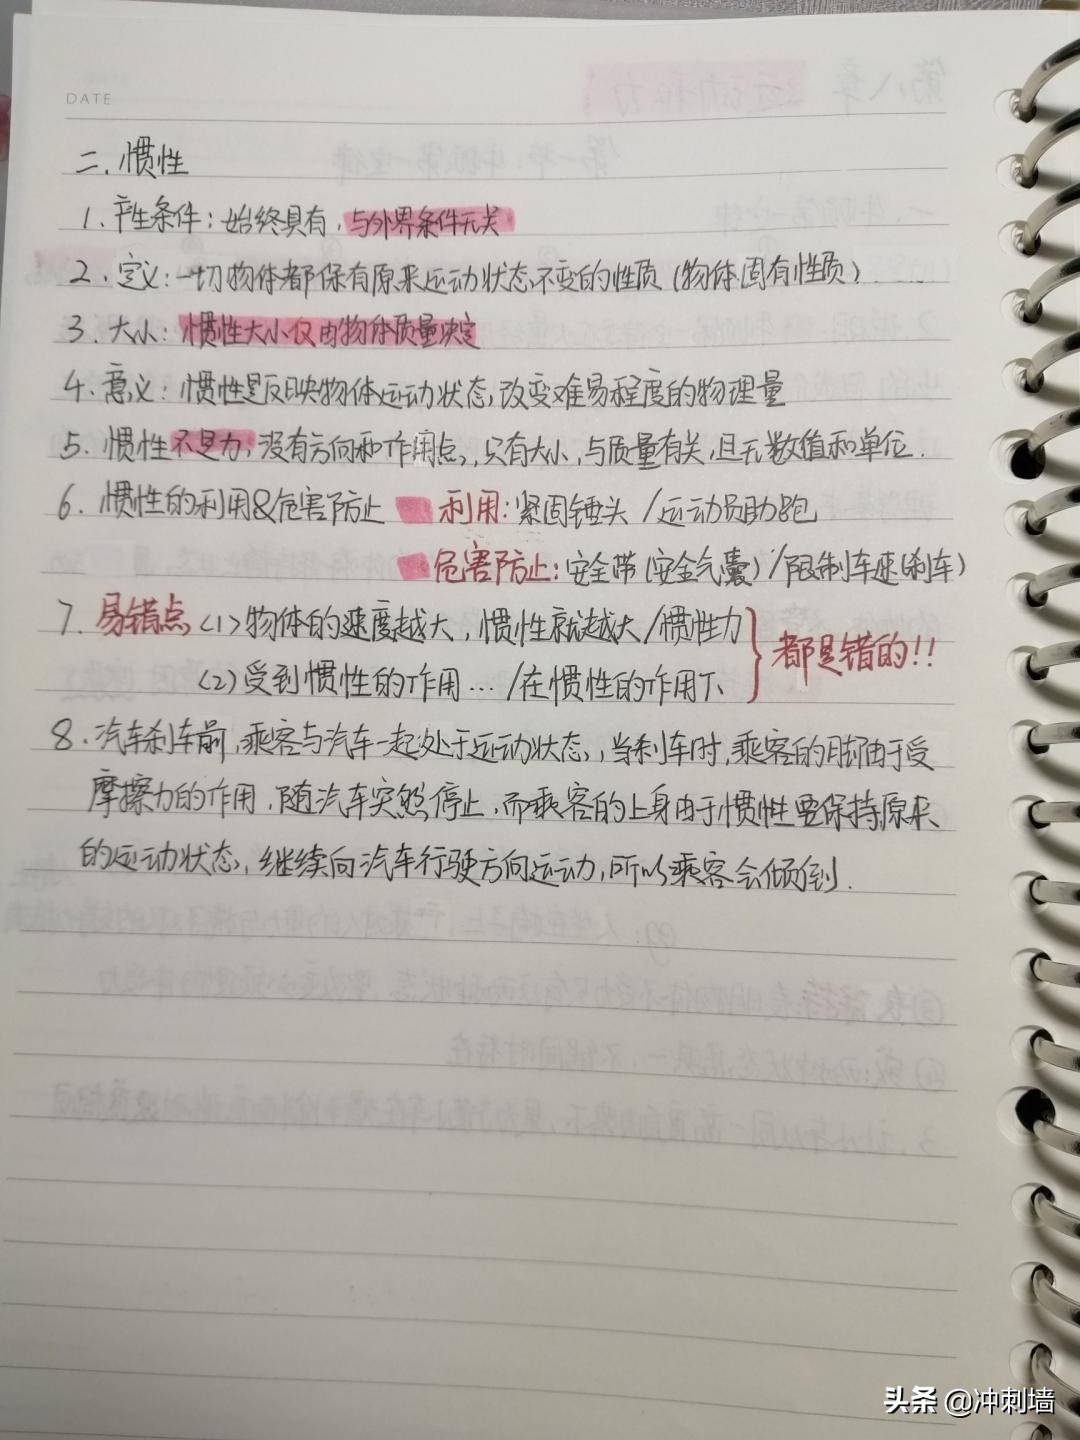 DATE
二. 惯性
1. 产生条件: 始终具有, 与外界条件无关
2. 定义: 一切物体都保有原来运动状态不变的性质 (物体固有性质)
3. 大小: 惯性大小仅由物体质量决定
4. 意义: 惯性是反映物体运动状态改变难易程度的物理量
5. 惯性不是力, 没有方向和作用点, 只有大小, 与质量有关, 且无数值和单位.
6. 惯性的利用&危害防止 利用: 紧固锤头 / 运动员助跑
危害防止: 安全带 (安全气囊) / 限制车速(刹车)
7. 易错点 (1) 物体的速度越大, 惯性就越大 / 惯性力
(2) 受到惯性的作用... / 在惯性的作用下
都是错的!!
8. 汽车刹车前, 乘客与汽车一起处于运动状态, 当刹车时, 乘客的脚由于受
摩擦力的作用, 随汽车突然停止, 而乘客的上身由于惯性要保持原来
的运动状态, 继续向汽车行驶方向运动, 所以乘客会倾倒.
头条 @冲刺墙